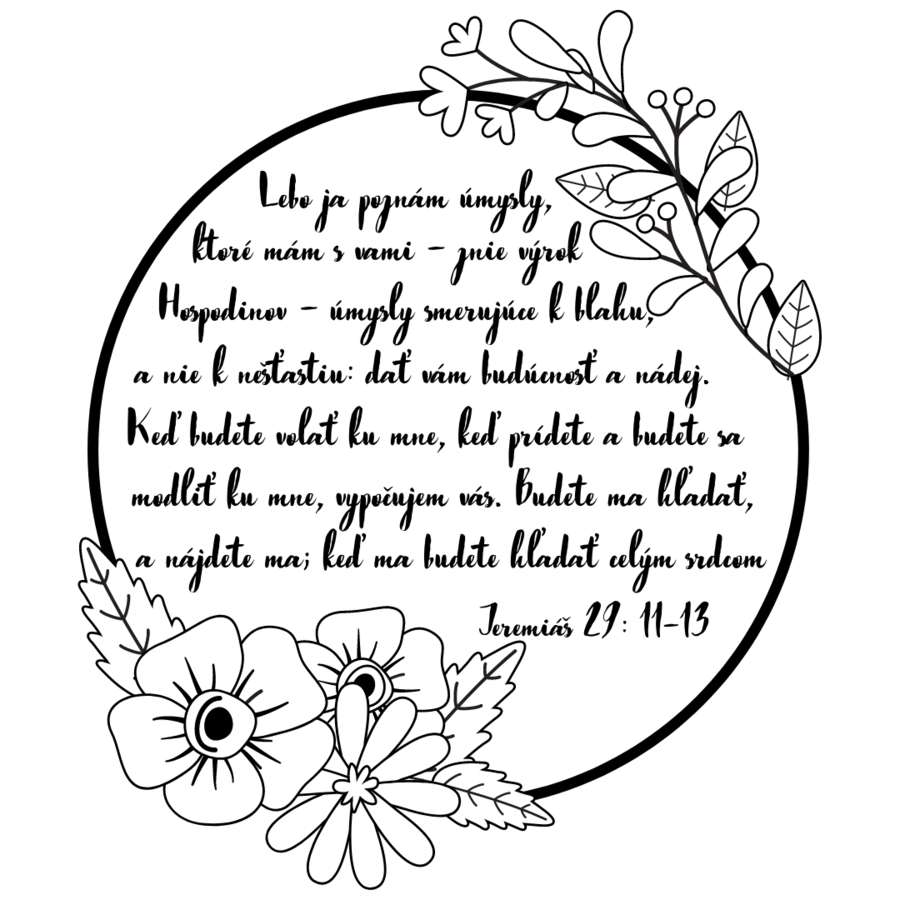 Lebo ja poznám úmysly,
ktoré mám s vami – znie výrok
Hospodinov – úmysly smerujúce k blahu,
a nie k nešťastiu: dať vám budúcnosť a nádej.
Keď budete volať ku mne, keď prídete a budete sa
modliť ku mne, vypočujem vás. Budete ma hľadať,
a nájdete ma; keď ma budete hľadať celým srdcom
Jeremiáš 29: 11-13